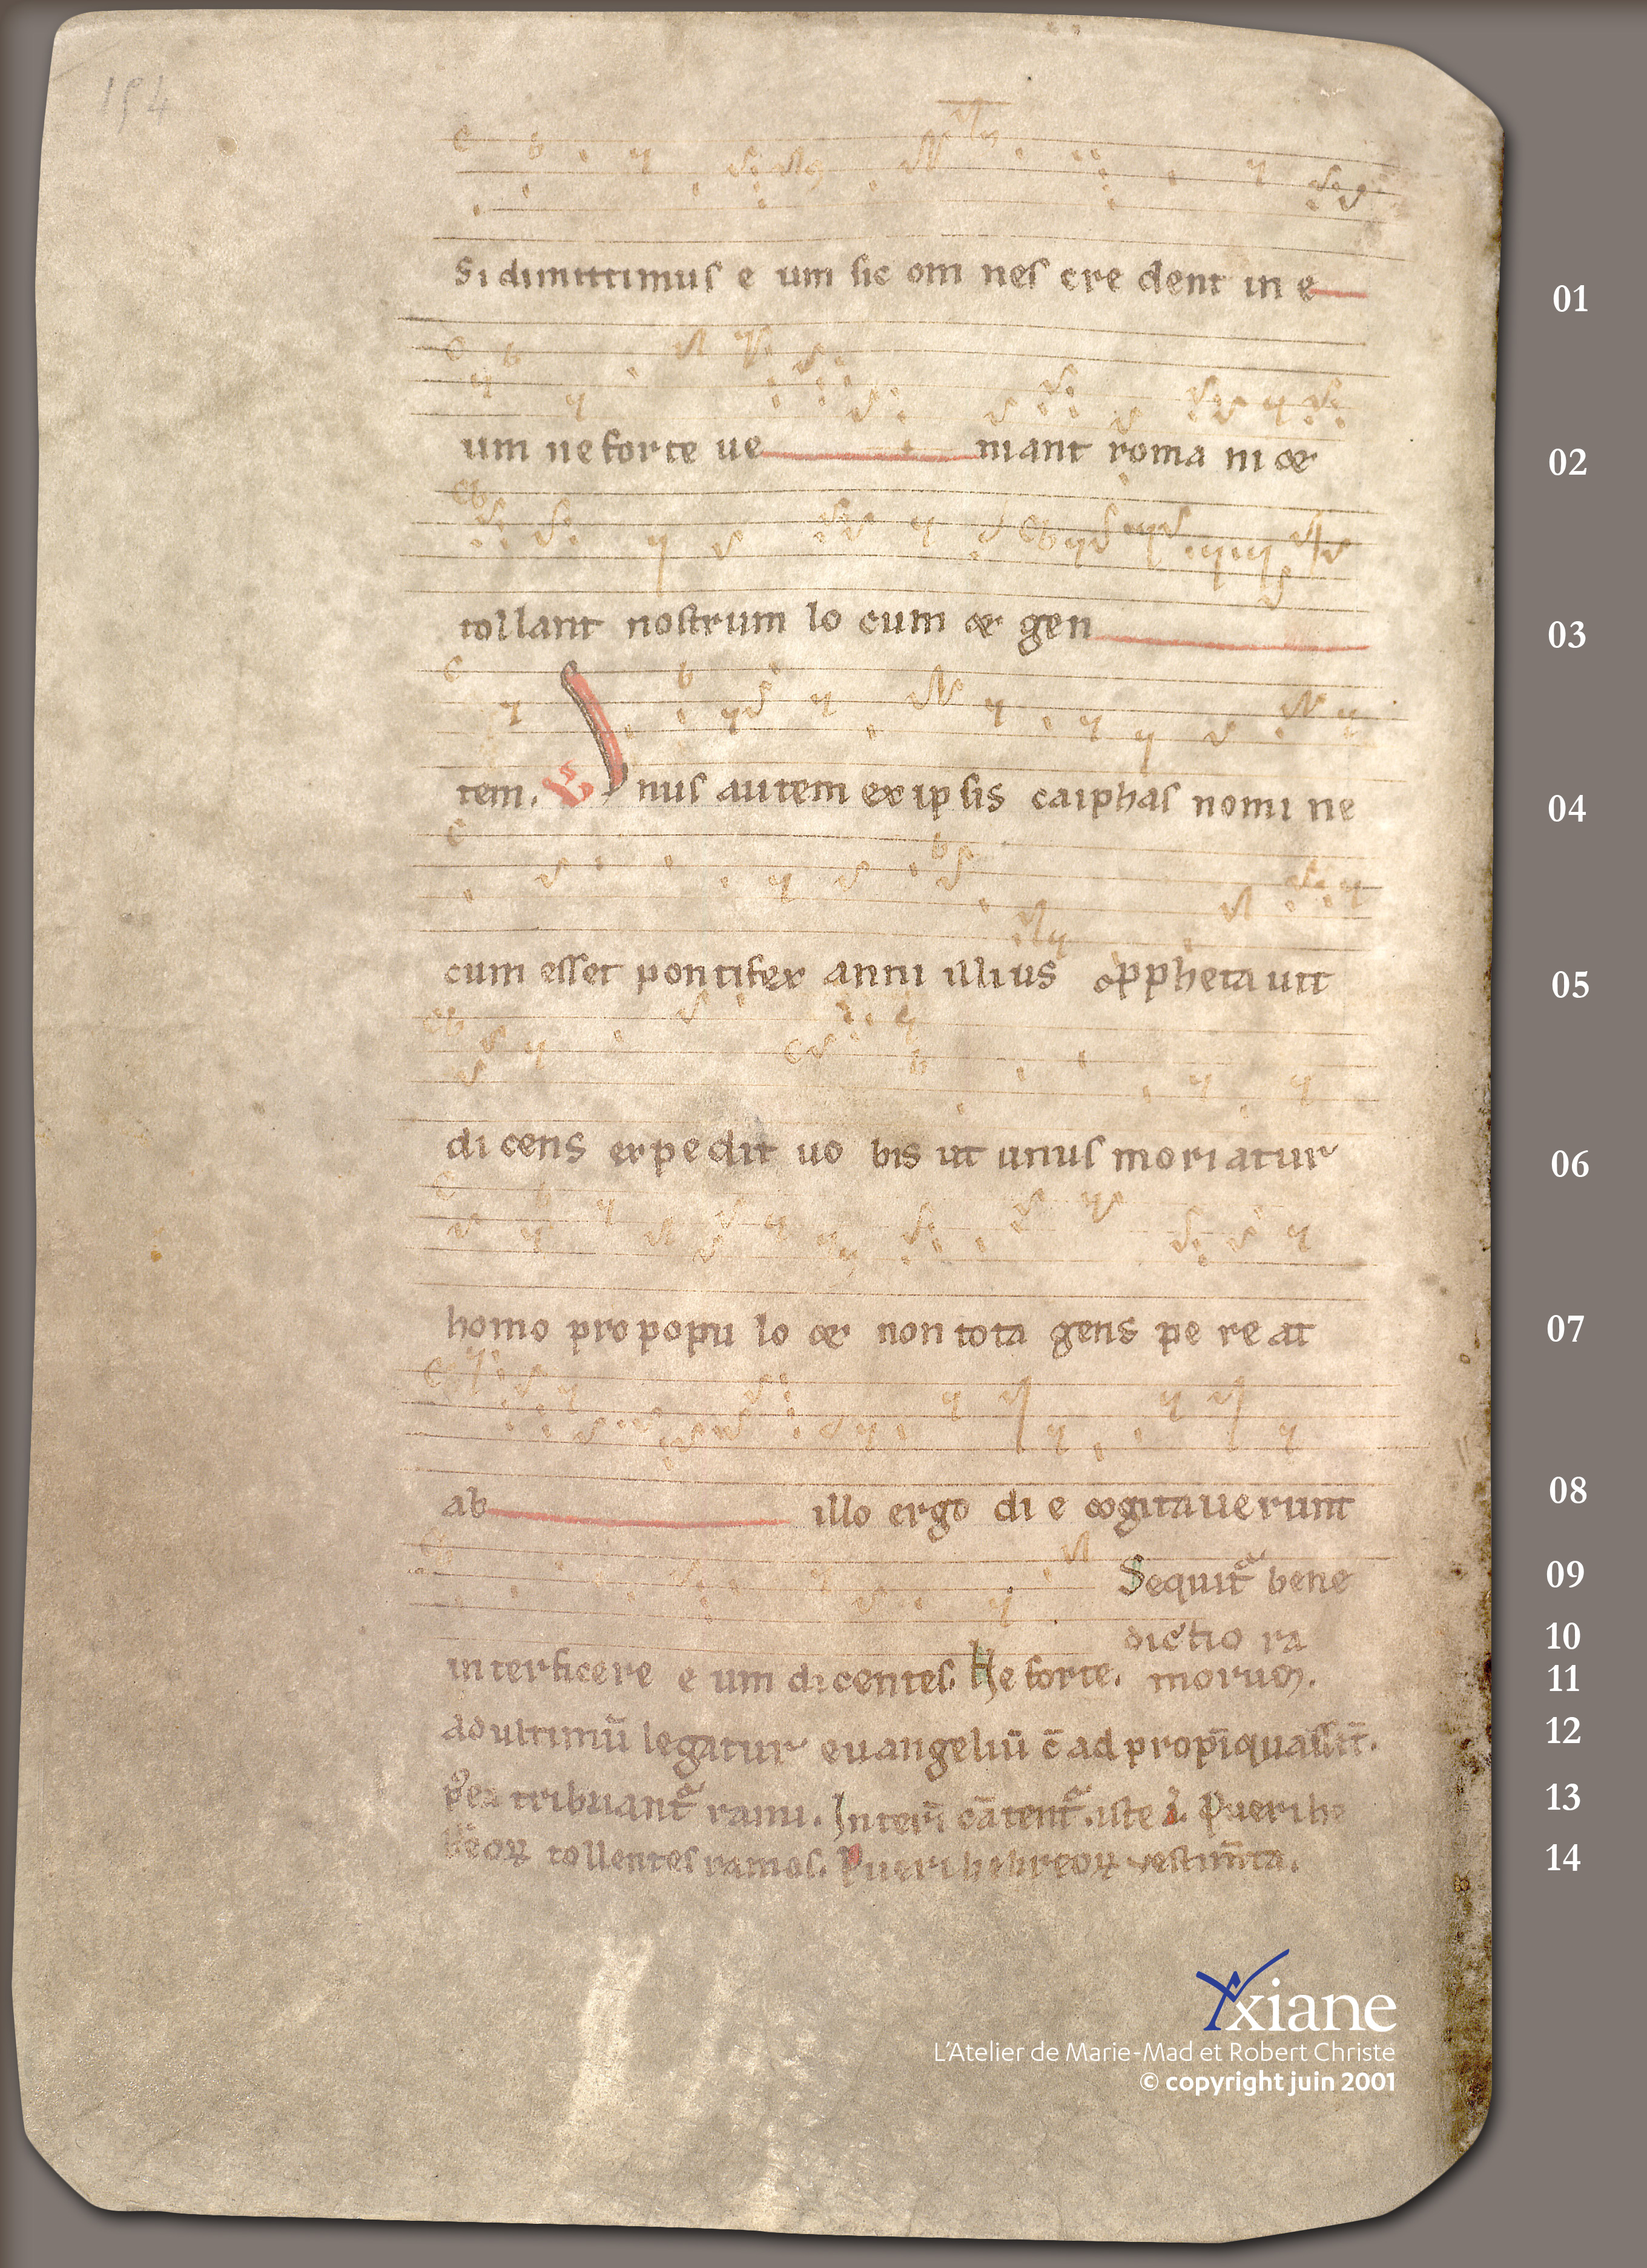 154
Si dimittimus e um sic om nes cre dent in e 01
um ne forte ve niant roma ni et 02
tollant nostrum lo cum et gen 03
tem. V Unus autem ex ip sis caiphas nomi ne 04
cum esset pontifex anni illius pphetavit 05
di cens expedit vo bis ut unus moriatur 06
homo pro popu lo et non tota gens pe re at 07
ab illo ergo di e cogitaverunt 08
Sequit bene 09
dictio ra 10
interficere e um dicentes. Ne forte. morum. 11
ad ultimū legatur euangeliū c̄ ad propīquassīt. 12
tribuant rami. Interī cātent iste Pueri he 13
breoꝝ tollentes ramos. Pueri hebreoꝝ vestimta. 14
Axiane
L'Atelier de Marie-Mad et Robert Christe
© copyright juin 2001